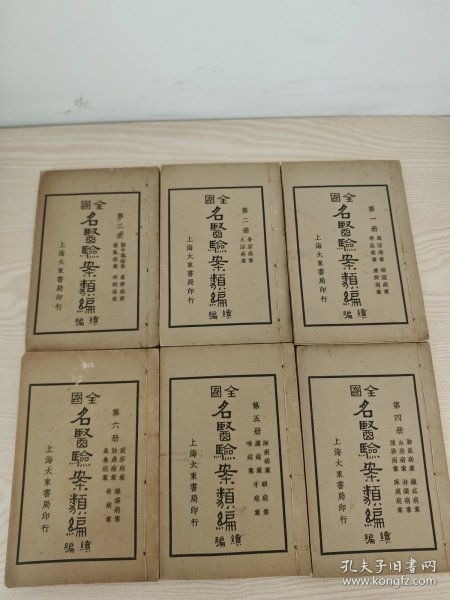 全國
名醫驗案類編
續編
第一册
上海大東書局印行
全國
名醫驗案類編
續編
第二册
上海大東書局印行
全國
名醫驗案類編
續編
第三册
上海大東書局印行
全國
名醫驗案類編
續編
第四册
上海大東書局印行
全國
名醫驗案類編
續編
第五册
上海大東書局印行
全國
名醫驗案類編
續編
第六册
上海大東書局印行
孔夫子旧书网
www.kongfz.com